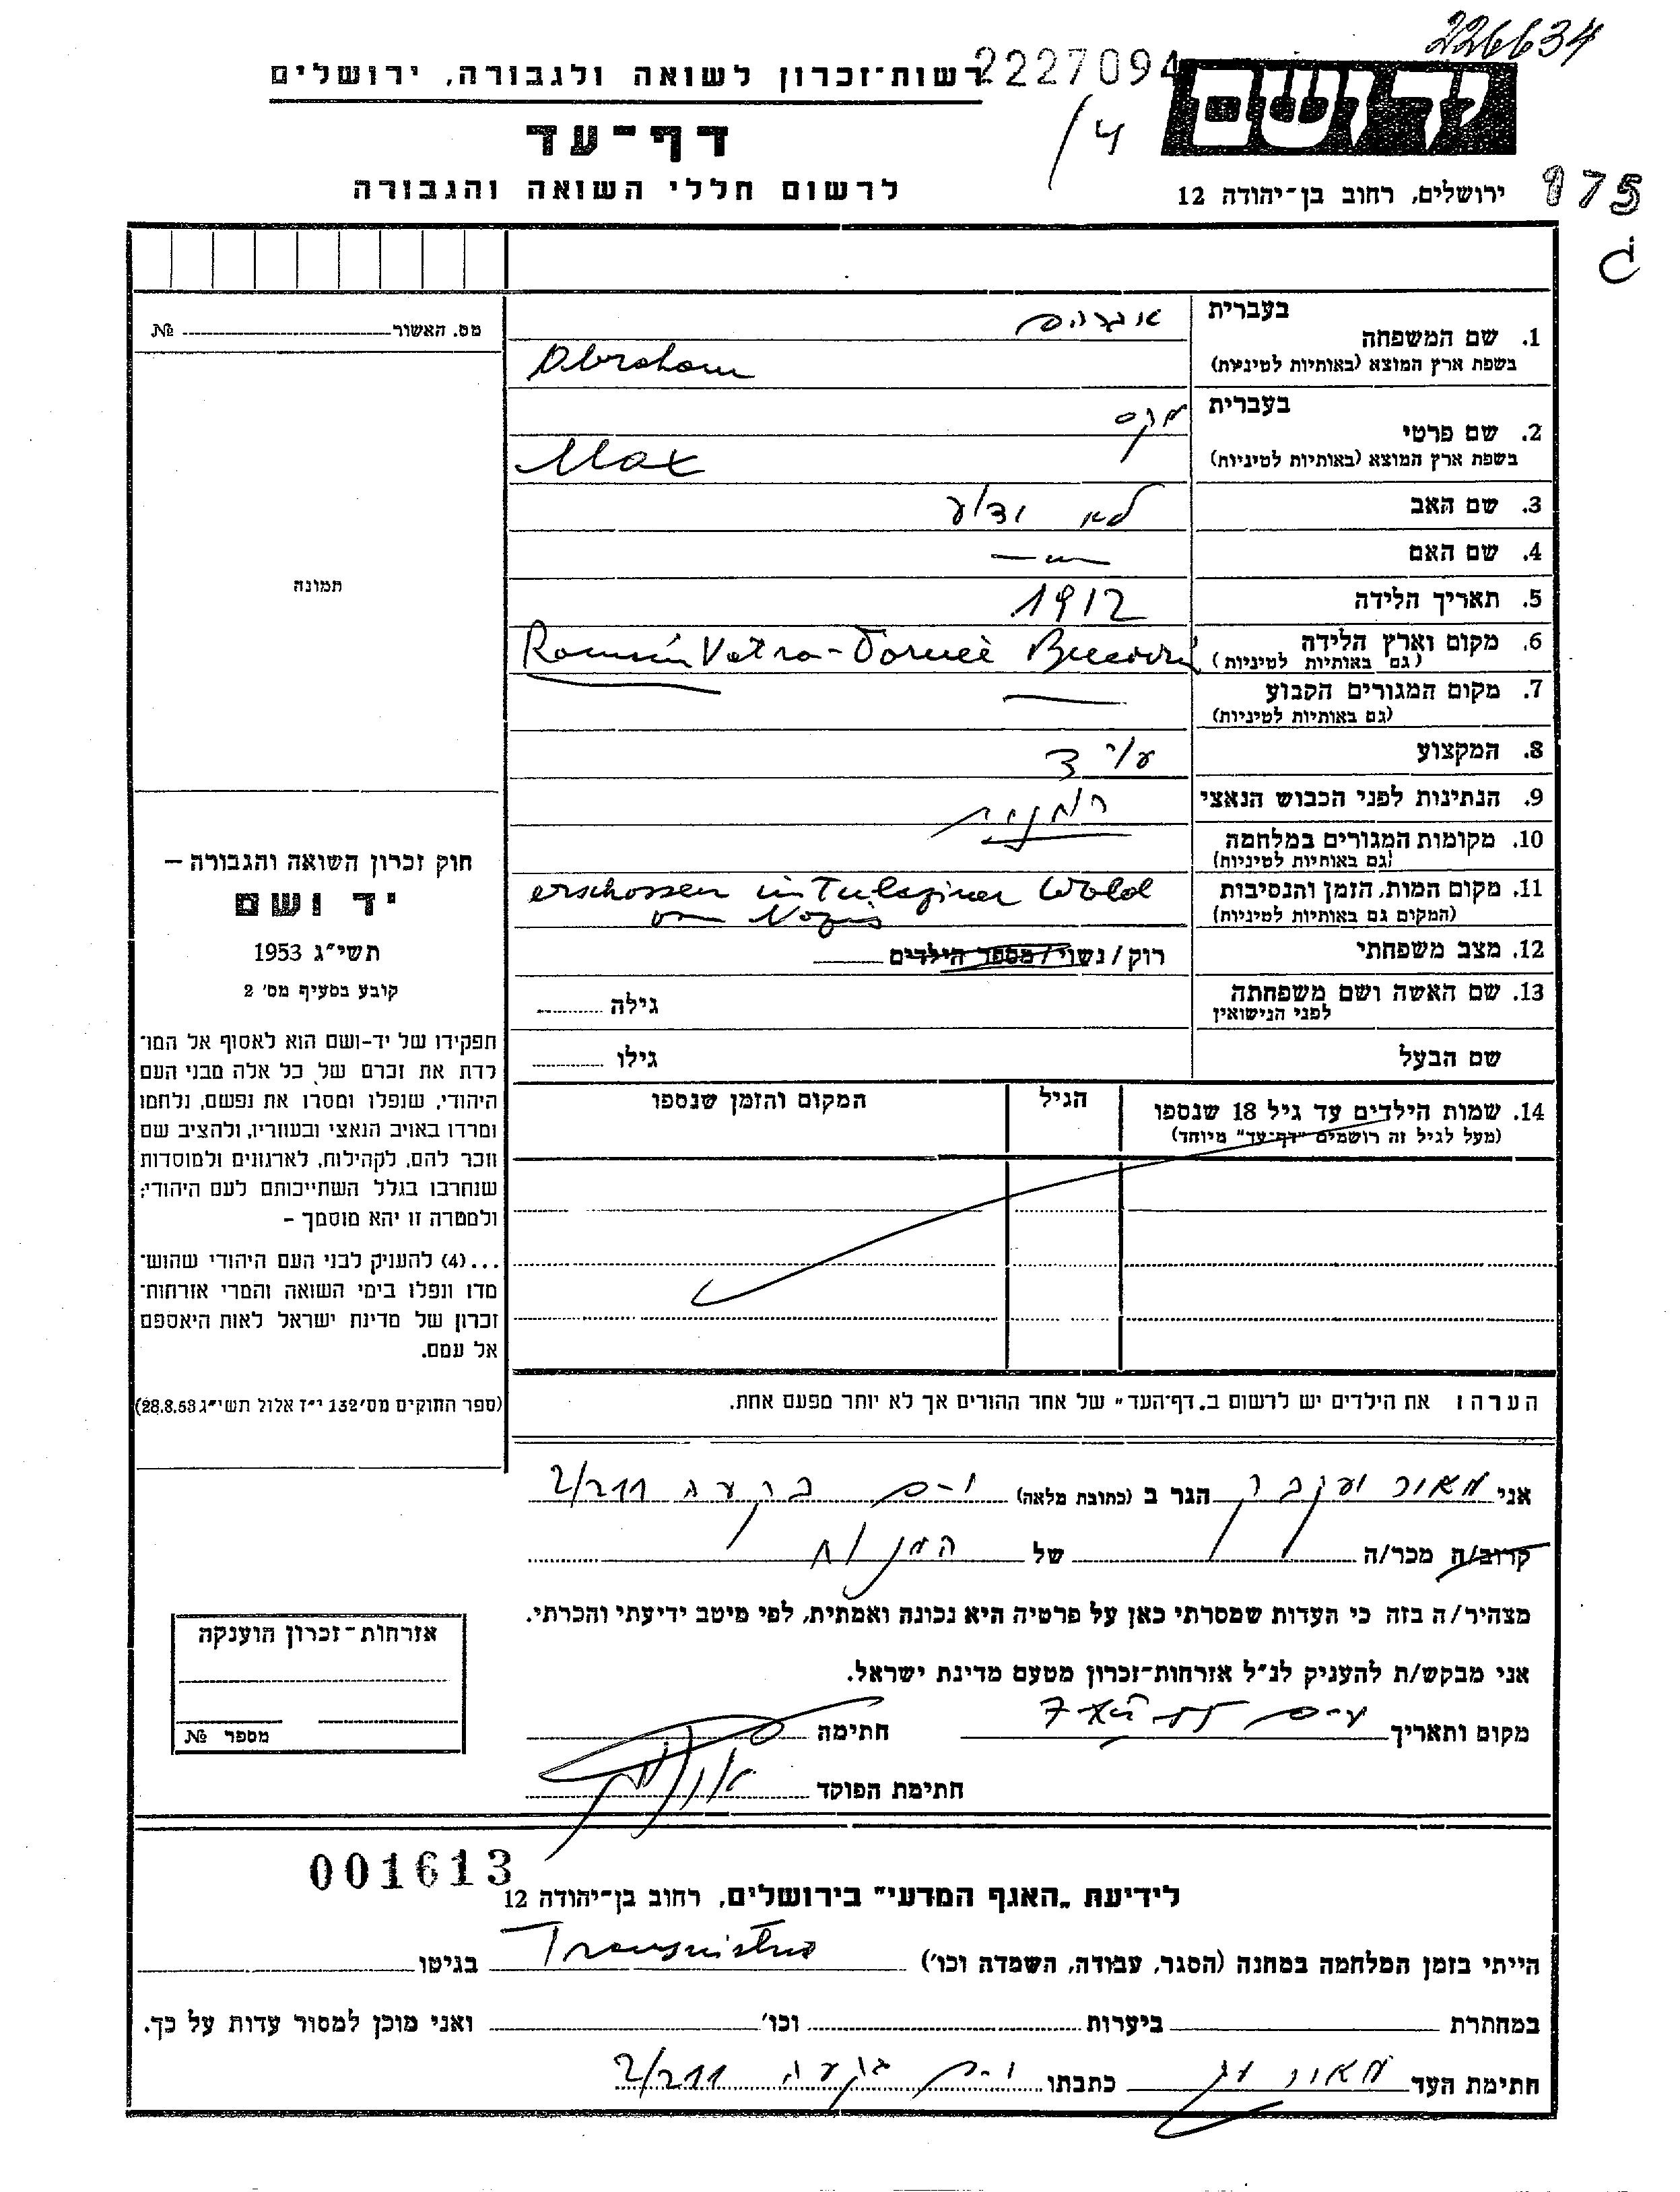 226634
רשות־זכרון לשואה ולגבורה, ירושלים
2227094
יד ושם
דף־עד
/4
לרשום חללי השואה והגבורה
ירושלים, רחוב בן־יהודה 12
975
מס. האשור № 
1. שם המשפחה בעברית אברהם
בשפת ארץ המוצא (באותיות לטיניות) Abraham
2. שם פרטי בעברית מקס
בשפת ארץ המוצא (באותיות לטיניות) Max
3. שם האב לא ידוע
4. שם האם —〃—
תמונה
5. תאריך הלידה 1912
6. מקום וארץ הלידה
(גם באותיות לטיניות) Vatra-Dornei
7. מקום המגורים הקבוע —
(גם באותיות לטיניות)
8. המקצוע
9. הנתינות לפני הכבוש הנאצי
10. מקומות המגורים במלחמה
(גם באותיות לטיניות)
11. מקום המות, הזמן והנסיבות erschossen im Wald
(המקום גם באותיות לטיניות) von Nazis
12. מצב משפחתי רוק / נשוי / מספר הילדים
13. שם האשה ושם משפחתה גילה
לפני הנישואין
שם הבעל גילו
14. שמות הילדים עד גיל 18 שנספו הגיל המקום והזמן שנספו
(מעל לגיל זה רושמים "דף־עד" מיוחד)
חוק זכרון השואה והגבורה —
יד ושם
תשי"ג 1953
קובע בסעיף מס' 2
תפקידו של יד-ושם הוא לאסוף אל המו־
לדת את זכרם של כל אלה מבני העם
היהודי, שנפלו ומסרו את נפשם, נלחמו
ומרדו באויב הנאצי ובעוזריו, ולהציב שם
וזכר להם, לקהילות, לארגונים ולמוסדות
שנחרבו בגלל השתייכותם לעם היהודי;
ולמטרה זו יהא מוסמך –
...(4) להעניק לבני העם היהודי שהוש־
מדו ונפלו בימי השואה והמרי אזרחות־
זכרון של מדינת ישראל לאות היאספם
אל עמם.
(ספר החוקים מס' 132 י"ז אלול תשי"ג 28.8.53)
הערה: את הילדים יש לרשום ב„דף־העד" של אחד ההורים אך לא יותר מפעם אחת.
אני מאור יעקב הגר ב (כתובת מלאה) י-ם בקעה 2/211
קרוב/ה מכר/ה של המנוח
מצהיר/ה בזה כי העדות שמסרתי כאן על פרטיה היא נכונה ואמתית, לפי מיטב ידיעתי והכרתי.
אני מבקש/ת להעניק לנ"ל אזרחות־זכרון מטעם מדינת ישראל.
מקום ותאריך חתימה
חתימת הפוקד
אזרחות־זכרון הוענקה
מספר №
001613
לידיעת „האגף המדעי" בירושלים, רחוב בן־יהודה 12
הייתי בזמן המלחמה במחנה (הסגר, עבודה, השמדה וכו') Transnistria בגיטו
במחתרת ביערות וכו' ואני מוכן למסור עדות על כך.
חתימת העד מאור כתבתו י-ם בקעה 2/211